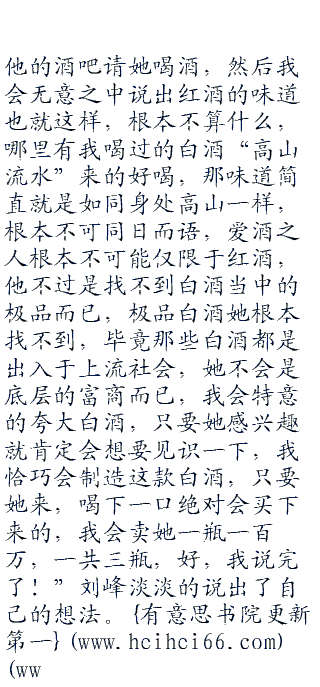 他的酒吧请她喝酒，然后我
会无意之中说出红酒的味道
也就这样，根本不算什么，
哪里有我喝过的白酒“高山
流水”来的好喝，那味道简
直就是如同身处高山一样，
根本不可同日而语，爱酒之
人根本不可能仅限于红酒，
他不过是找不到白酒当中的
极品而已，极品白酒她根本
找不到，毕竟那些白酒都是
出入于上流社会，她不会是
底层的富商而已，我会特意
的夸大白酒，只要她感兴趣
就肯定会想要见识一下，我
恰巧会制造这款白酒，只要
她来，喝下一口绝对会买下
来的，我会卖她一瓶一百
万，一共三瓶，好，我说完
了！”刘峰淡淡的说出了自
己的想法。{有意思书院更新
第一}(www.hcihci66.com)
(ww